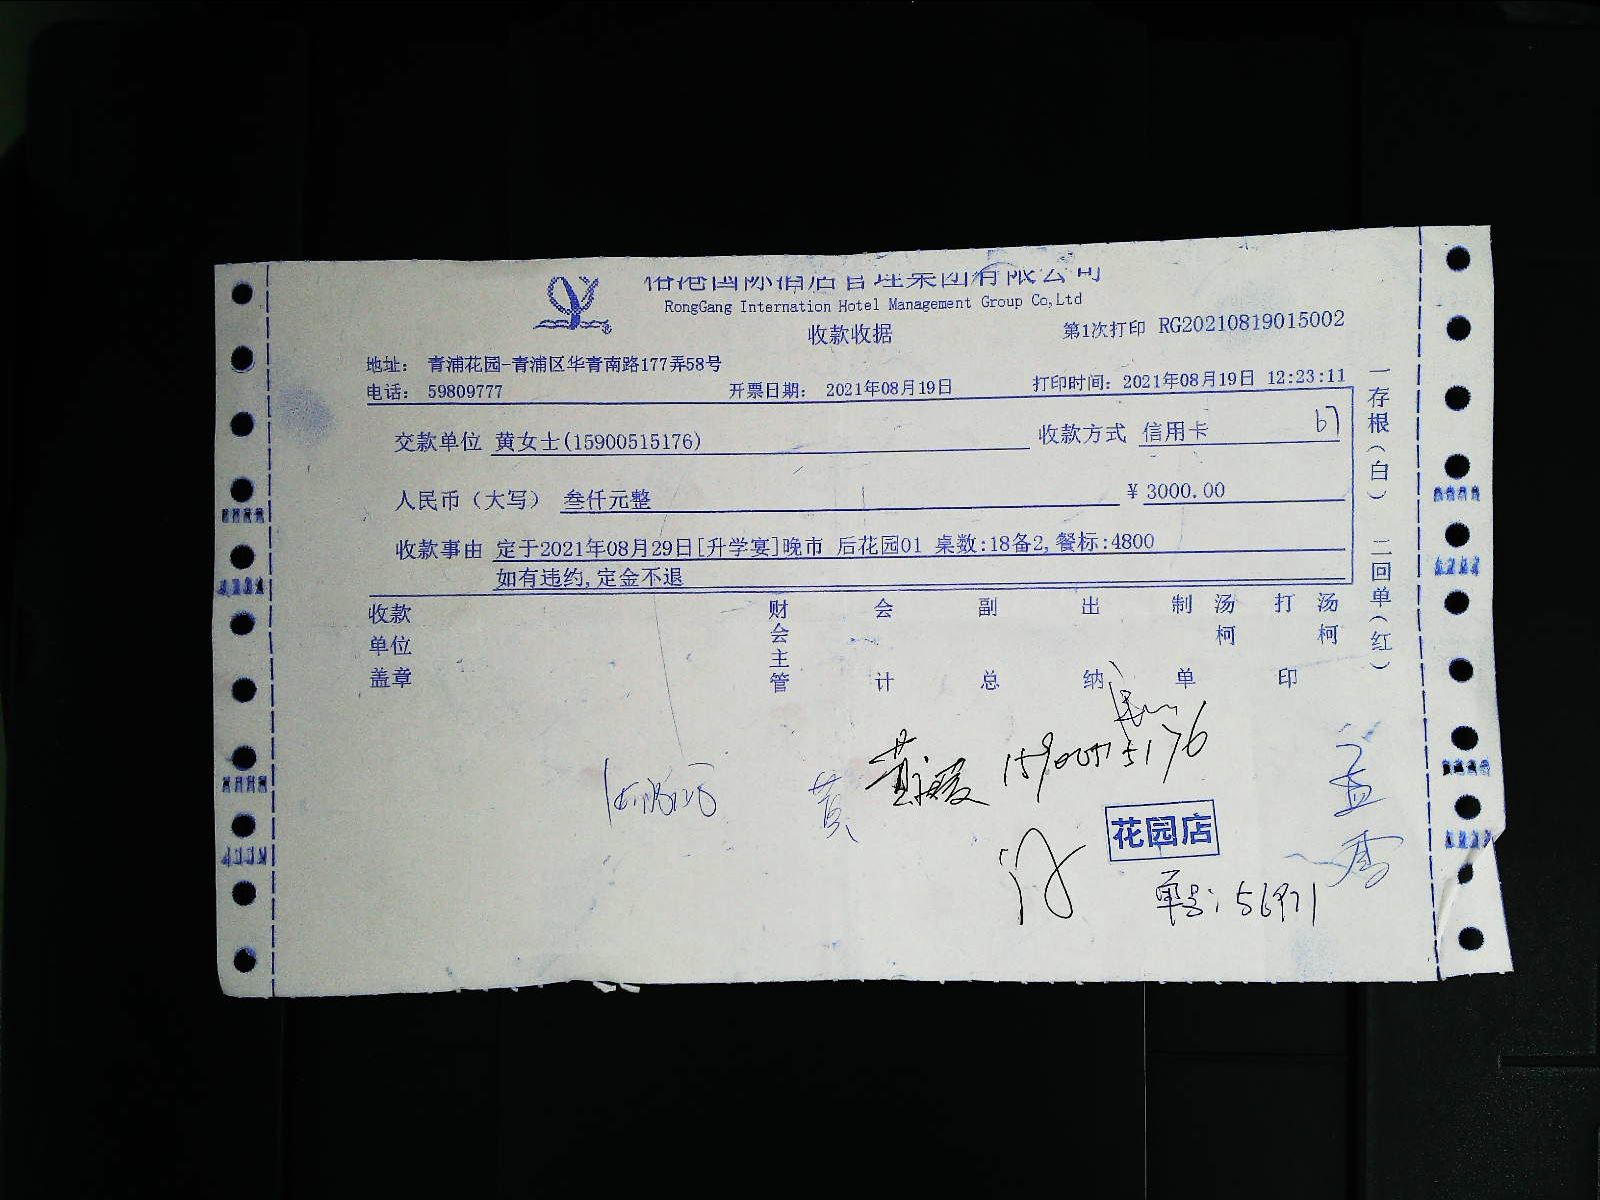 港国际酒店管理集团有限公司
RongGang International Hotel Management Group Co,Ltd
收款收据
第1次打印 RG20210819015002
地址: 青浦花园-青浦区华青南路177弄58号
电话: 59809777 开票日期: 2021年08月19日 打印时间: 2021年08月19日 12:23:11
交款单位 黄女士(15900515176) 收款方式 信用卡 67
人民币（大写） 叁仟元整 ¥ 3000.00
收款事由 定于2021年08月29日[升学宴]晚市 后花园01 桌数:18备2,餐标:4800
如有违约,定金不退
一存根(白) 二回单(红)
收款单位盖章 财会主管 会计 副总 出纳 制单 汤柯 打印 汤柯
黄 15900515176
花园店
单号: 56971